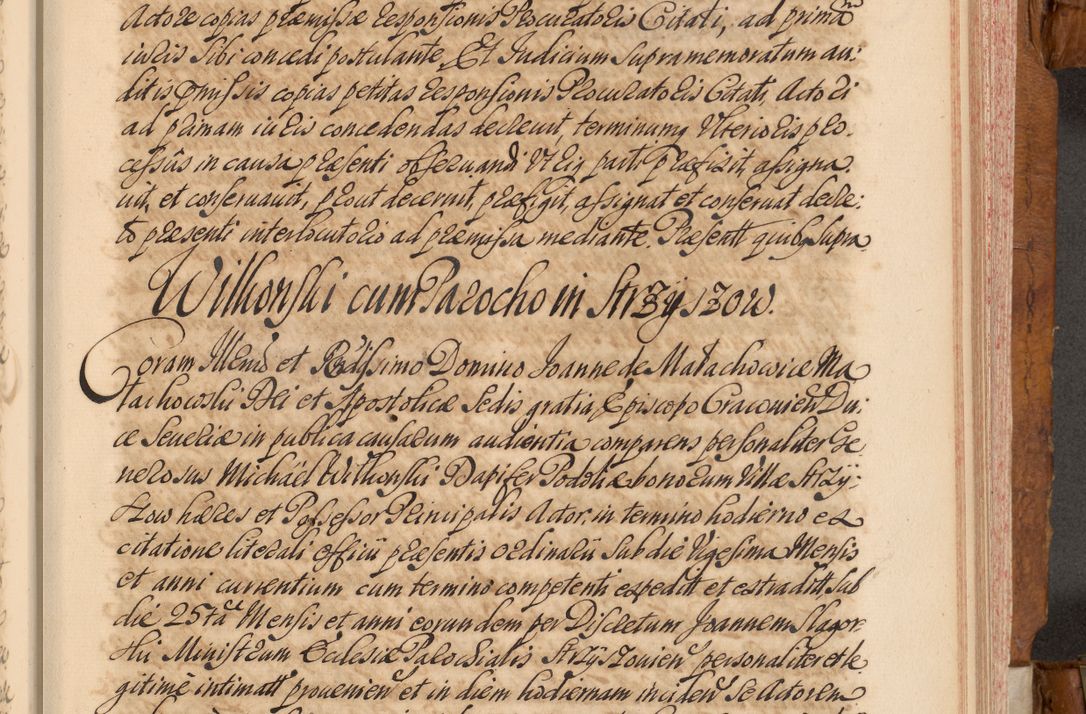 Actore copias præmissæ responsionis Procuratoris Citati, ad primam
iuris sibi concedi postulante, Et Judicium supramemoratum au:
ditis præmissis copias petitas responsionis Procuratoris Citati, Actori
ad primam iuris concedendas decrevit, terminumq ulterioris pro:
cessûs in causa præsenti observandi utriq parti præfixit, assigna:
vit, et conservavit, prout decernit, præfigit, assignat et conservat decre:
to præsenti interlocutorio ad præmissa mediante. Præsentt quibq supra
Wilkonski cum Parocho in Strzyszow.
Coram Illmo et Rndissimo Domino Joanne de Małachowice Ma
łachowski Dei et Apostolicæ Sedis gratia, Episcopo Cracovien Du:
ce Severiæ in publica causarum audientia comparens personaliter Ge
nerosus Michaël Wilkonski Dapifer Podoliæ bonorum Villæ Strzy:
szow hæres et Possessor Principalis Actor, in termino hodierno ex
citatione literali officii præsentis ordinarii sub die Vigesima Mensis
et anni currentium cum termino competenti expeditt et estraditt, sub
die 25ta Mensis et anni eorundem per Discretum Joannem
Ministrum Ecclesiæ Parochialis Strzyszovien personaliter et le
gitimè intimatt provenien et in diem hodiernam inciden se Actorem